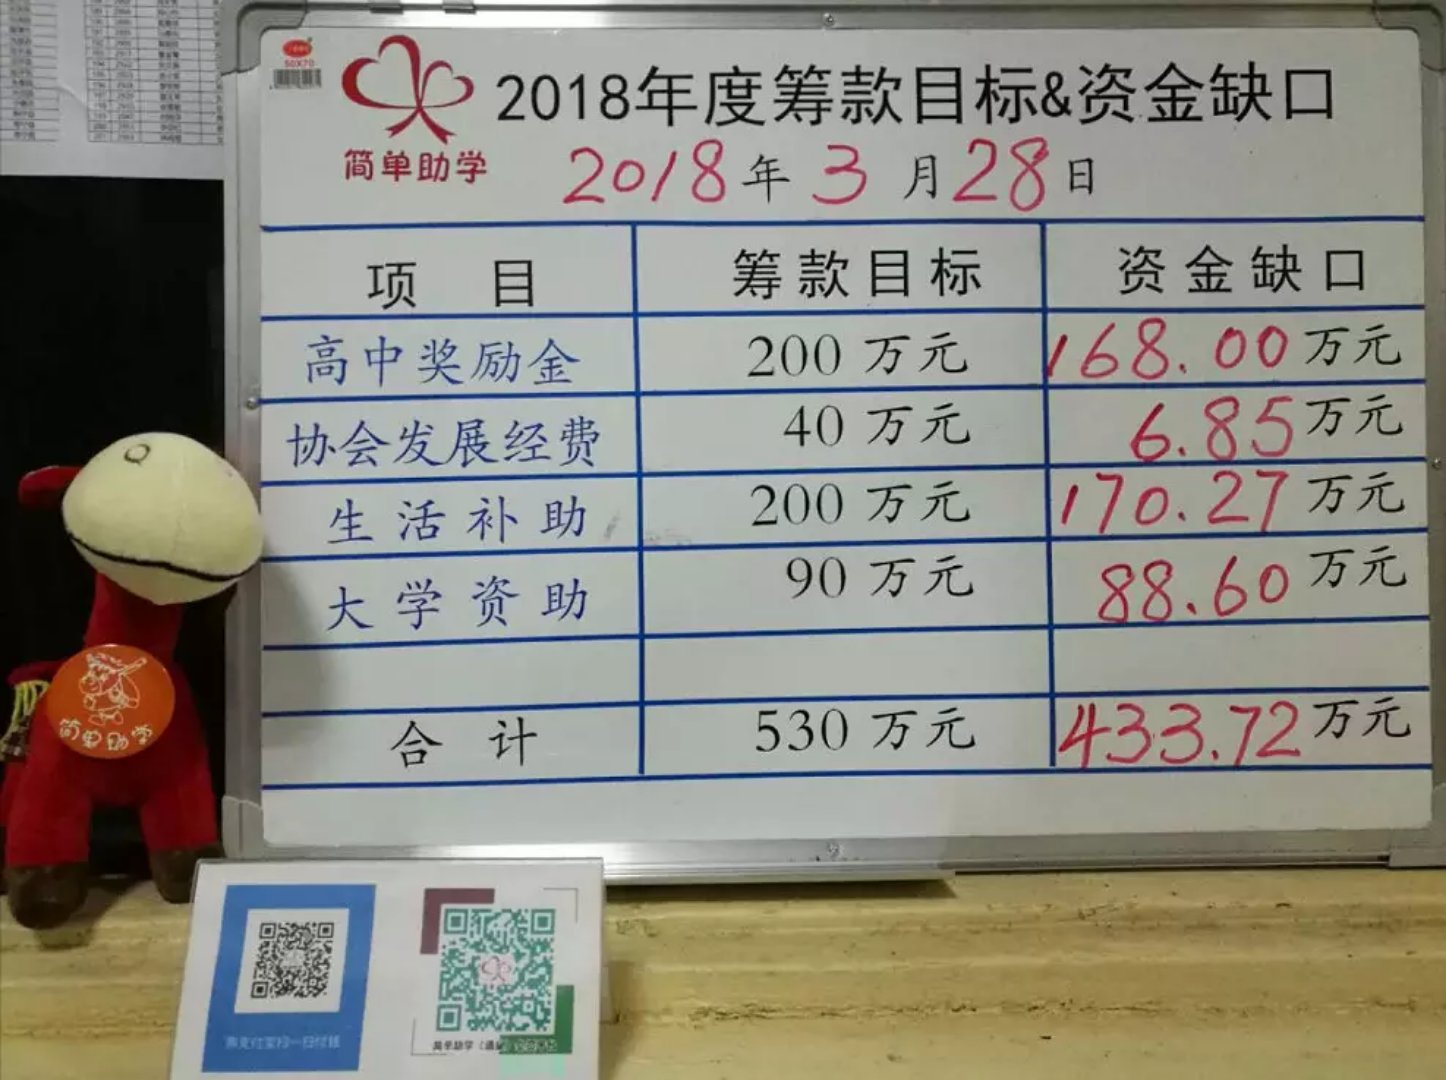 50X70
2018年度筹款目标&资金缺口
简单助学
2018年3月28日
项 目 筹款目标 资金缺口
高中奖励金 200万元 168.00万元
协会发展经费 40万元 6.85万元
生活补助 200万元 170.27万元
大学资助 90万元 88.60万元
合计 530万元 433.72万元
简单助学